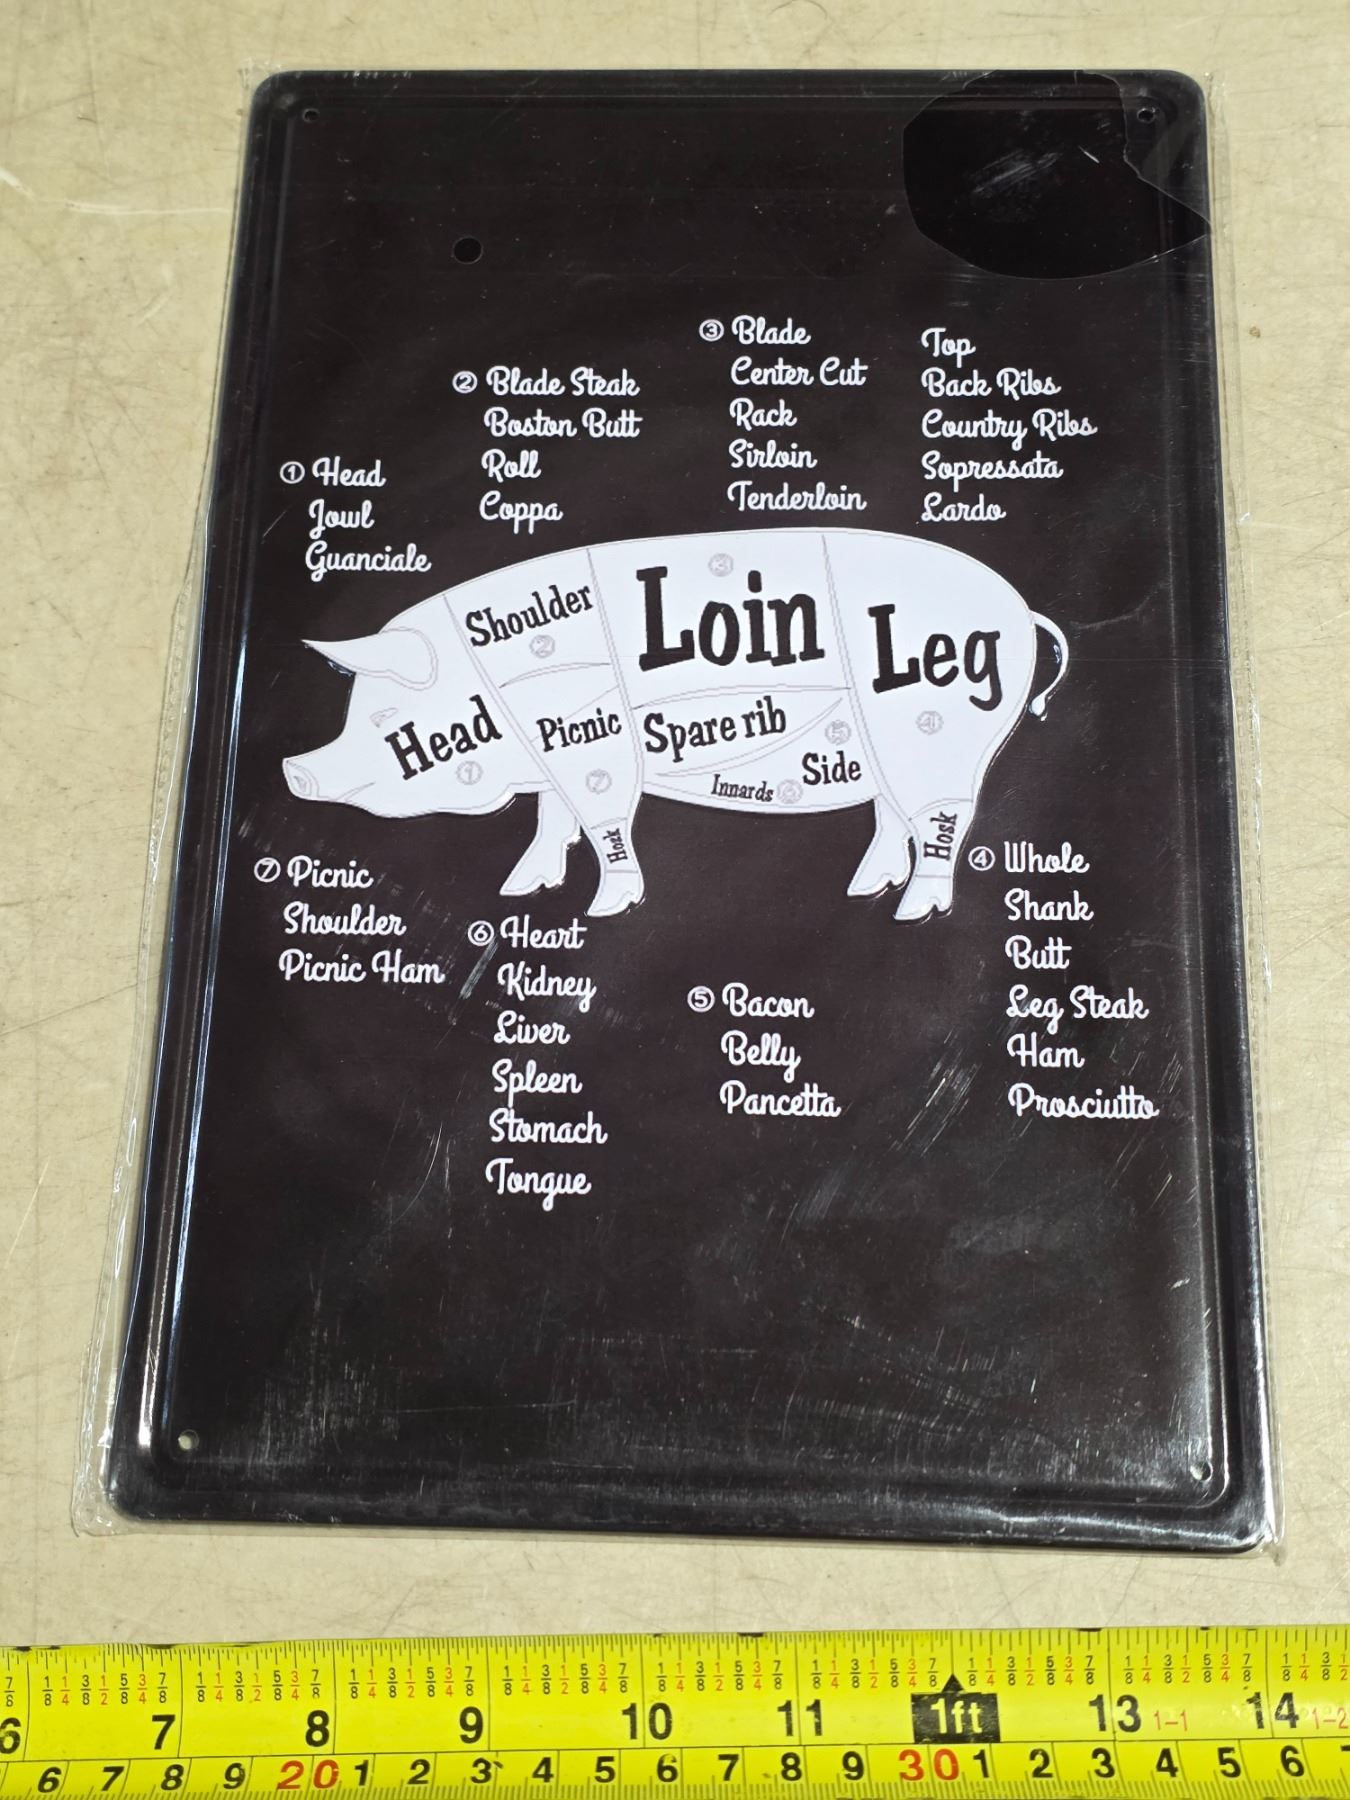 ③ Blade
Center Cut
Rack
Sirloin
Tenderloin
Top
Back Ribs
Country Ribs
Sopressata
Lardo
② Blade Steak
Boston Butt
Roll
Coppa
① Head
Jowl
Guanciale
Shoulder
②
Loin
③
Leg
④
Head
①
Picnic
⑦
Spare rib
Side
⑤
Innards ⑥
Hosk
Hosk
⑦ Picnic
Shoulder
Picnic Ham
⑥ Heart
Kidney
Liver
Spleen
Stomach
Tongue
⑤ Bacon
Belly
Pancetta
④ Whole
Shank
Butt
Leg Steak
Ham
Prosciutto
6 7 8 9 10 11 1ft 13 1-1 14 1-2
6 7 8 9 20 1 2 3 4 5 6 7 8 9 30 1 2 3 4 5 6